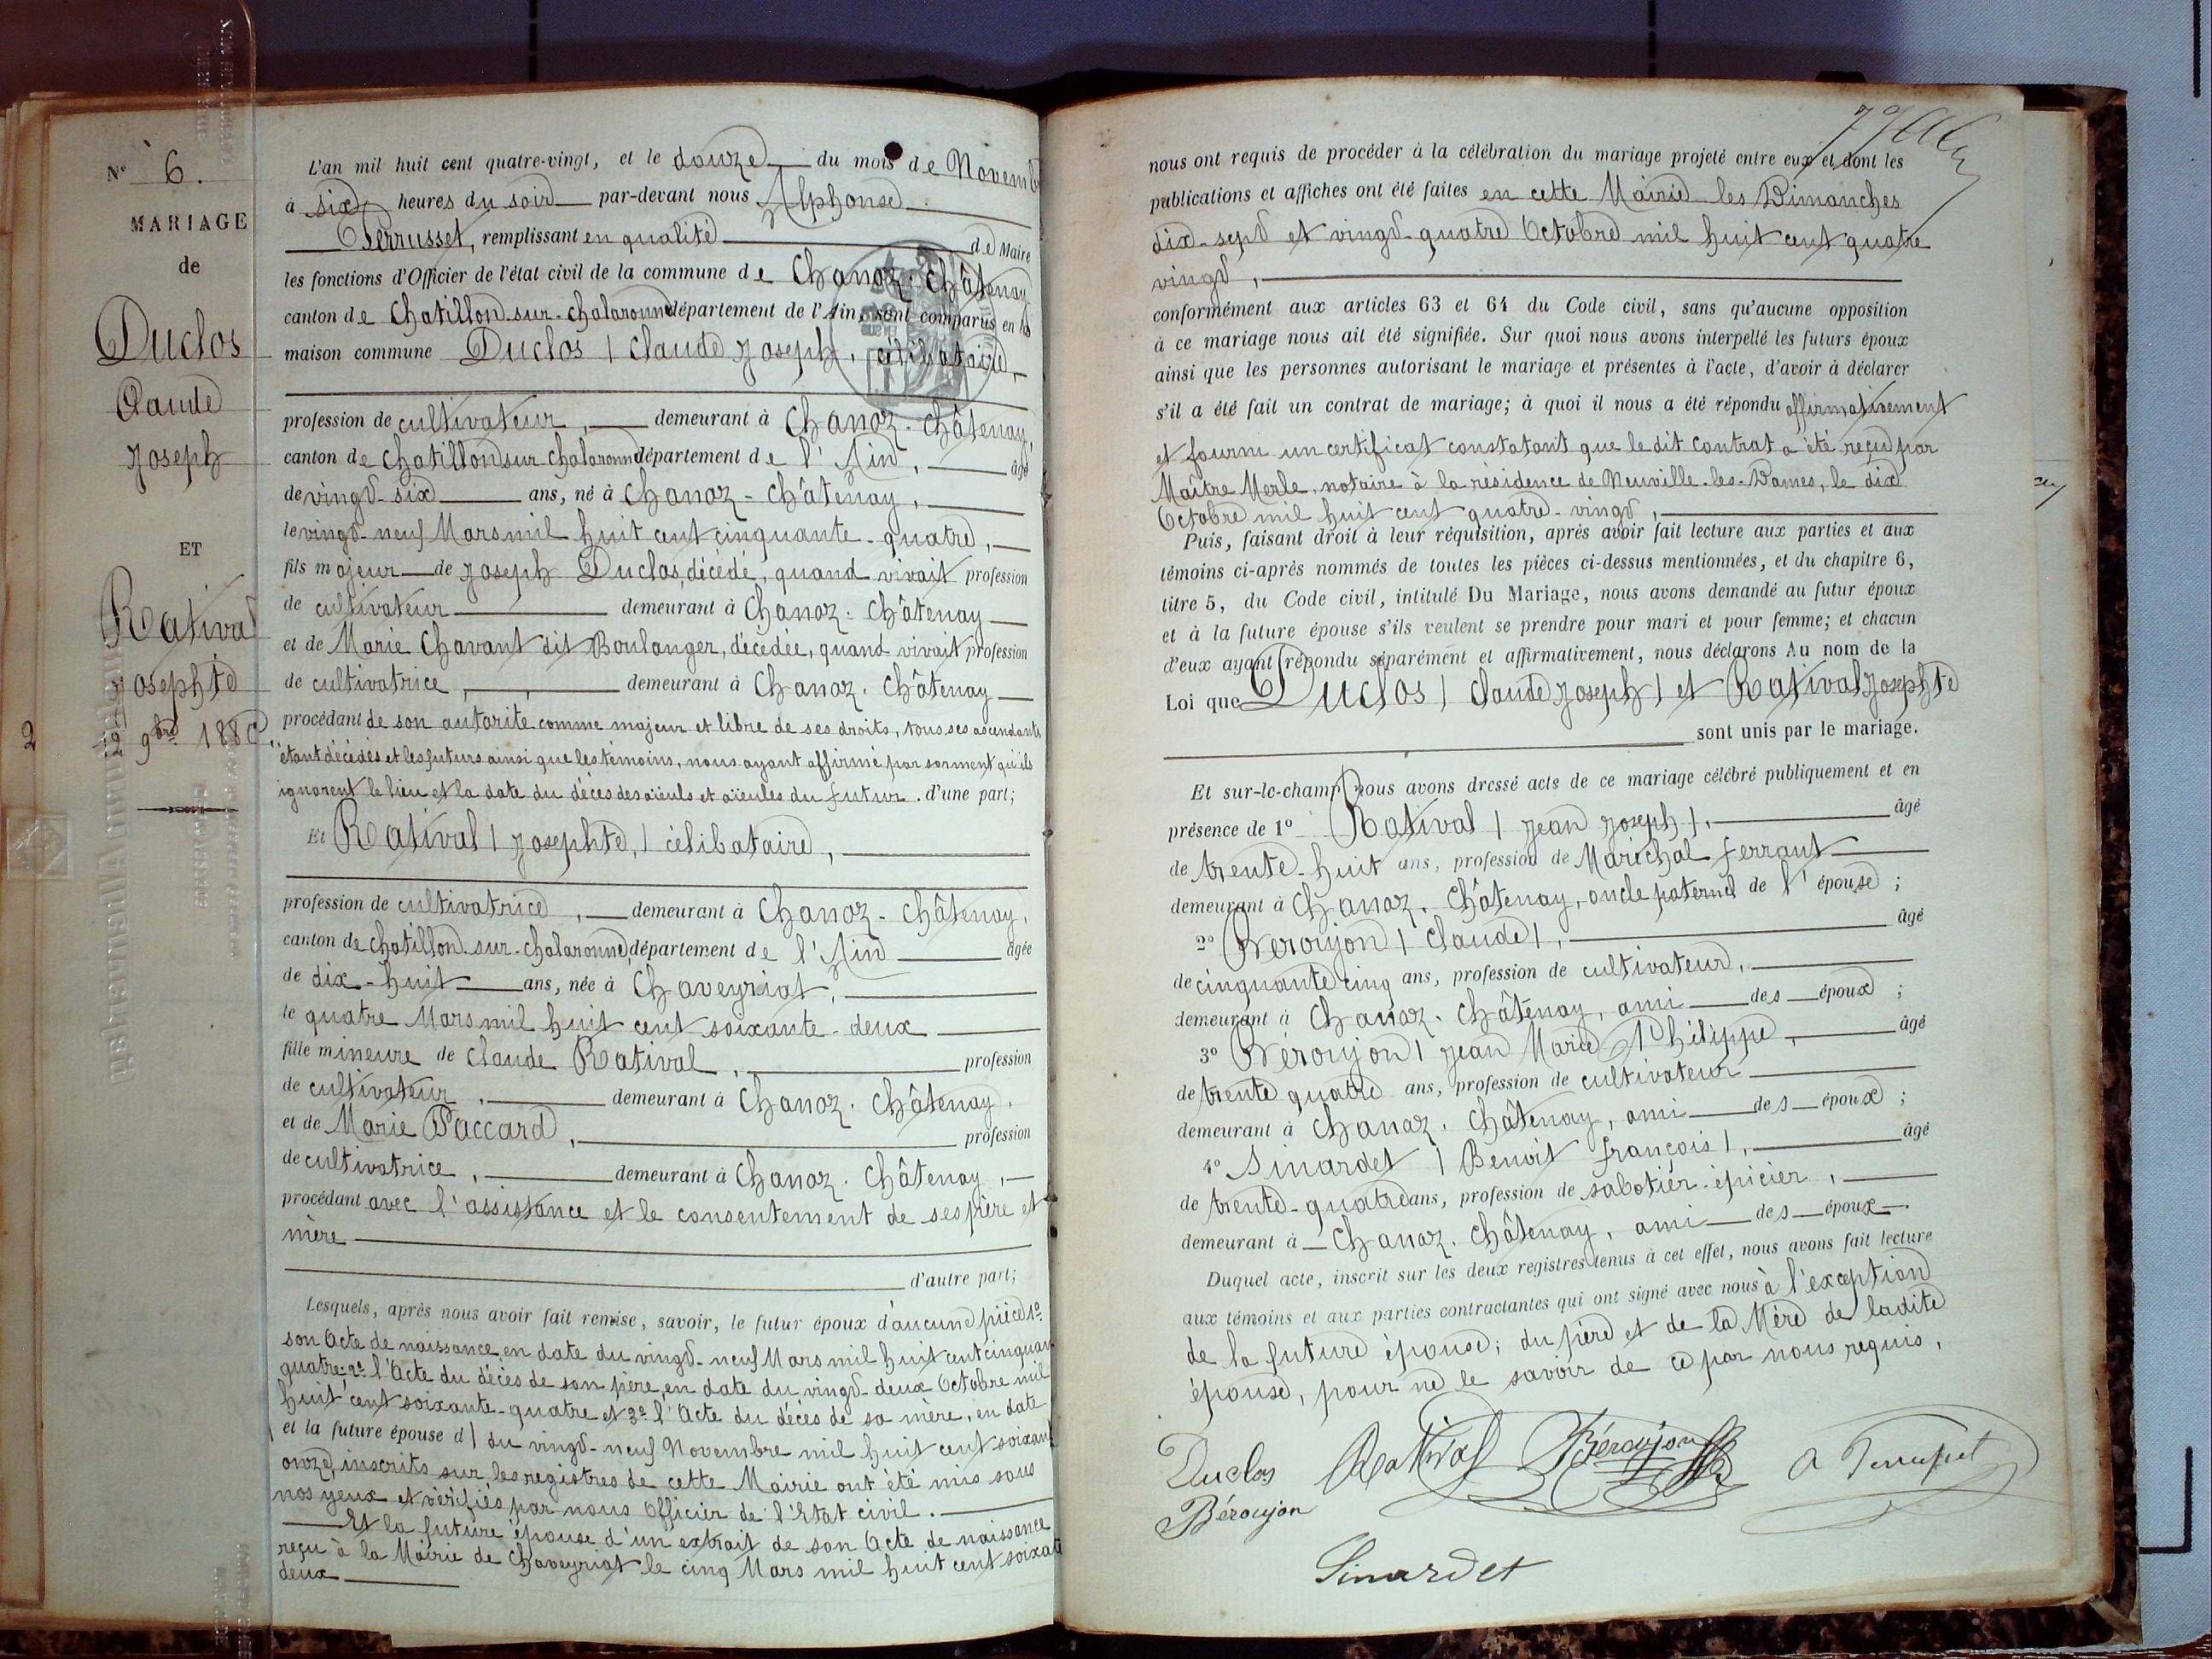 N° 6.
MARIAGE
de
Duclos
Claude
Joseph
ET
Ratival
Josephte
9bre 1880.
L'an mil huit cent quatre-vingt, et le douze du mois de Novemb
à six heures du soir par-devant nous Alphonse
Perrusset, remplissant en qualité de Maire
les fonctions d'Officier de l'état civil de la commune de Chanoz-Châtenay
canton de Chatillon-sur-chalaronne département de l'Ain, sont comparus en la
maison commune Duclos | Claude Joseph, célibataire,
profession de cultivateur, demeurant à Chanoz-Châtenay,
canton de Chatillon sur chalaronne département de l'Ain, âgé
de vingt-six ans, né à Chanoz-Châtenay,
le vingt-neuf Mars mil huit cent cinquante-quatre,
fils majeur de Joseph Duclos, décédé, quand vivait profession
de cultivateur demeurant à Chanoz-Châtenay
et de Marie Chavant dit Boulanger, décédée, quand vivait profession
de cultivatrice, demeurant à Chanoz-Châtenay
procédant de son autorité comme majeur et libre de ses droits, tous ses ascendants
étant décédés et les futurs ainsi que les témoins, nous ayant affirmé par serment qu'ils
ignorent le lieu et la date du décès des aïeuls et aïeules du futur. d'une part;
Et Ratival | Josephte, | célibataire,
profession de cultivatrice, demeurant à Chanoz-Châtenay,
canton de chatillon-sur-chalaronne, département de l'Ain âgée
de dix-huit ans, née à Chaveyriat,
le quatre Mars mil huit cent soixante-deux
fille mineure de Claude Ratival, profession
de cultivateur, demeurant à Chanoz-Châtenay,
et de Marie Paccard, profession
de cultivatrice, demeurant à Chanoz-Châtenay,
procédant avec l'assistance et le consentement de ses père et
mère
d'autre part;
Lesquels, après nous avoir fait remise, savoir, le futur époux d'aucune pièce 1°
son Acte de naissance en date du vingt-neuf Mars mil huit cent cinquan
quatre; 2° l'Acte du décès de son père, en date du vingt-deux Octobre mil
huit cent soixante-quatre et 3° l'Acte du décès de sa mère, en date
et la future épouse d | du vingt-neuf Novembre mil huit cent soixant
onze, inscrits sur les registres de cette Mairie ont été mis sous
nos yeux et vérifiés par nous Officier de l'Etat civil.
Et la future épouse d'un extrait de son Acte de naissance
reçu à la Mairie de Chaveyriat le cinq Mars mil huit cent soixante
deux
nous ont requis de procéder à la célébration du mariage projeté entre eux et dont les
publications et affiches ont été faites en cette Mairie les Dimanches
dix-sept et vingt-quatre Octobre mil huit cent quatre
vingt,
conformément aux articles 63 et 64 du Code civil, sans qu'aucune opposition
à ce mariage nous ait été signifiée. Sur quoi nous avons interpellé les futurs époux
ainsi que les personnes autorisant le mariage et présentes à l'acte, d'avoir à déclarer
s'il a été fait un contrat de mariage; à quoi il nous a été répondu affirmativement
et fourni un certificat constatant que le dit contrat a été reçu par
Maître Merle, notaire à la résidence de Neuville-les-Dames, le dix
Octobre mil huit cent quatre-vingt,
Puis, faisant droit à leur réquisition, après avoir fait lecture aux parties et aux
témoins ci-après nommés de toutes les pièces ci-dessus mentionnées, et du chapitre 6,
titre 5, du Code civil, intitulé Du Mariage, nous avons demandé au futur époux
et à la future épouse s'ils veulent se prendre pour mari et pour femme; et chacun
d'eux ayant répondu séparément et affirmativement, nous déclarons Au nom de la
Loi que Duclos | Claude Joseph | et Ratival Josephte
sont unis par le mariage.
Et sur-le-champ nous avons dressé acte de ce mariage célébré publiquement et en
présence de 1° Ratival | Jean Joseph |, âgé
de trente-huit ans, profession de Maréchal ferrant
demeurant à Chanoz-Châtenay, oncle paternel de l'épouse;
2° Béroujon | Claude |, âgé
de cinquante cinq ans, profession de cultivateur,
demeurant à Chanoz-Châtenay, ami des époux;
3° Béroujon | Jean Marie Philippe, âgé
de trente quatre ans, profession de cultivateur
demeurant à Chanoz-Châtenay, ami des époux;
4° Sinardet | Benoit François |, âgé
de trente-quatre ans, profession de sabotier-épicier,
demeurant à Chanoz-Châtenay, ami des époux.
Duquel acte, inscrit sur les deux registres tenus à cet effet, nous avons fait lecture
aux témoins et aux parties contractantes qui ont signé avec nous à l'exception
de la future épouse; du père et de la Mère de ladite
épouse, pour ne le savoir de ce par nous requis.
Duclos Ratival Béroujon A Perrusset
Béroujon
Sinardet